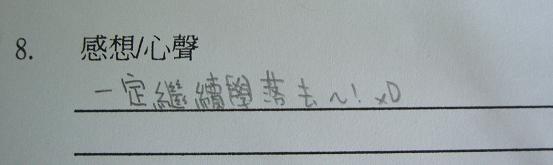 8. 感想/心聲
一定繼續學落去~! xD